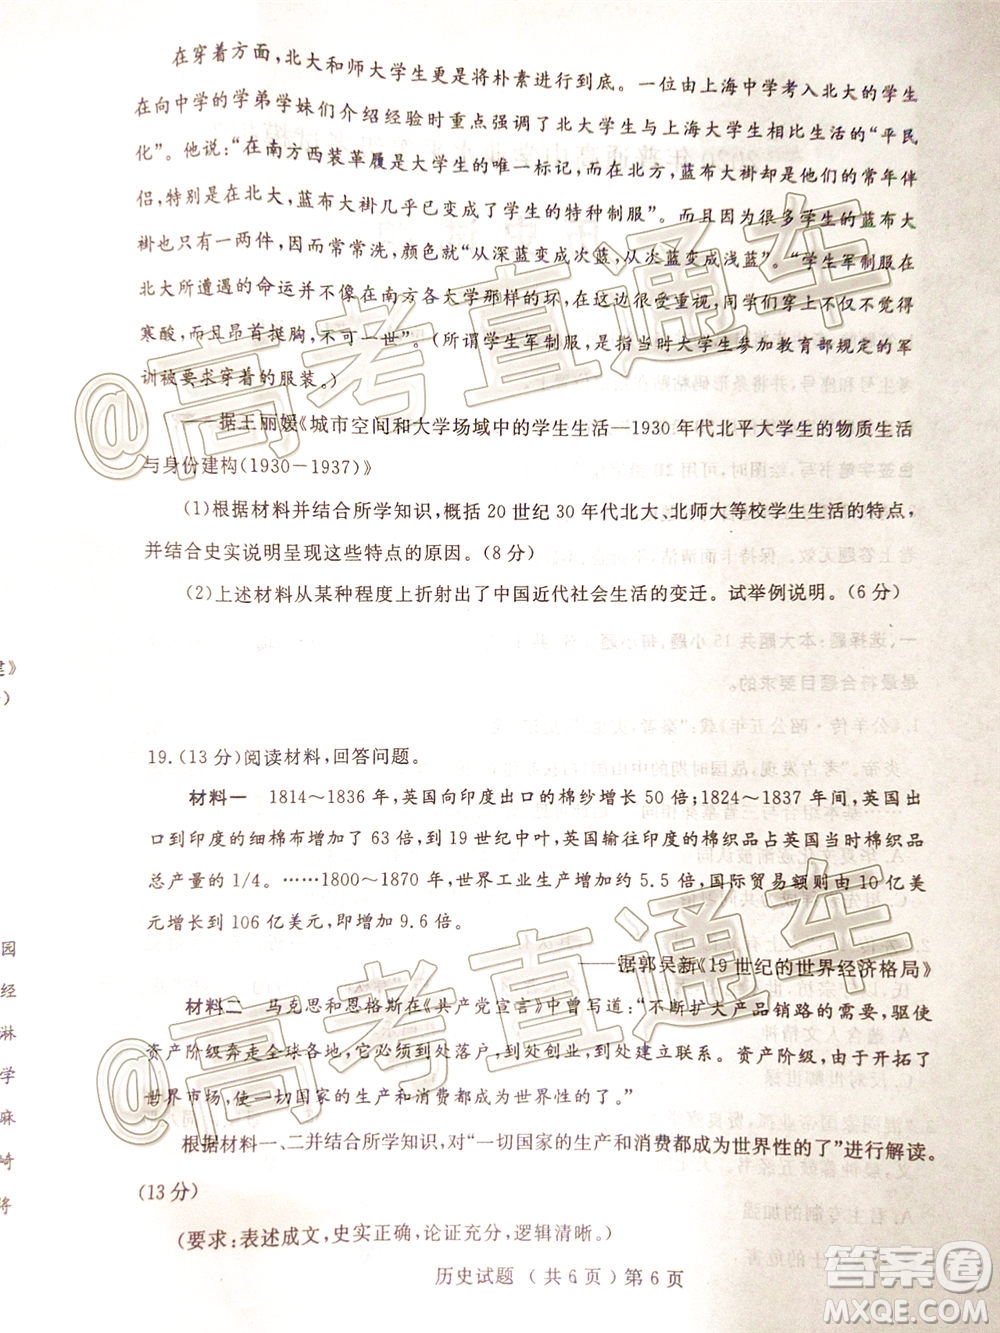 在穿着方面,北大和师大学生更是将朴素进行到底。一位由上海中学考入北大的学生
在向中学的学弟学妹们介绍经验时重点强调了北大学生与上海大学生相比生活的“平民
化”。他说:“在南方西装革履是大学生的唯一标记,而在北方,蓝布大褂却是他们的常年伴
侣,特别是在北大,蓝布大褂几乎已变成了学生的特种制服”。而且因为很多学生的蓝布大
褂也只有一两件,因而常常洗,颜色就“从深蓝变成次蓝,从次蓝变成浅蓝”。“学生军制服在
北大所遭遇的命运并不像在南方各大学那样的坏,在北大很受重视,同学们穿上不仅不觉得
寒酸,而且昂首挺胸,不可一世”。(所谓学生军制服,是指当时大学生参加教育部规定的军
训被要求穿着的服装。)
——据王丽媛《城市空间和大学场域中的学生生活—1930年代北平大学生的物质生活
与身份建构(1930-1937)》
(1)根据材料并结合所学知识,概括20世纪30年代北大、北师大等校学生生活的特点,
并结合史实说明呈现这些特点的原因。(8分)
(2)上述材料从某种程度上折射出了中国近代社会生活的变迁。试举例说明。(6分)
19.(13分)阅读材料,回答问题。
材料一 1814~1836年,英国向印度出口的棉纱增长50倍;1824~1837年间,英国出
口到印度的细棉布增加了63倍,到19世纪中叶,英国输往印度的棉织品占英国当时棉织品
总产量的1/4。……1800~1870年,世界工业生产增加约5.5倍,国际贸易额则由10亿美
元增长到106亿美元,即增加9.6倍。
——据郭吴新《19世纪的世界经济格局》
材料二 马克思和恩格斯在《共产党宣言》中曾写道:“不断扩大产品销路的需要,驱使
资产阶级奔走全球各地,它必须到处落户,到处创业,到处建立联系。资产阶级,由于开拓了
世界市场,使一切国家的生产和消费都成为世界性的了。”
根据材料一、二并结合所学知识,对“一切国家的生产和消费都成为世界性的了”进行解读。
(13分)
(要求:表述成文,史实正确,论证充分,逻辑清晰。)
历史试题 (共6页)第6页
园
经
淋
学
麻
崎
将
@高考直通车
@高考直通车
答案圈
MXQE.COM